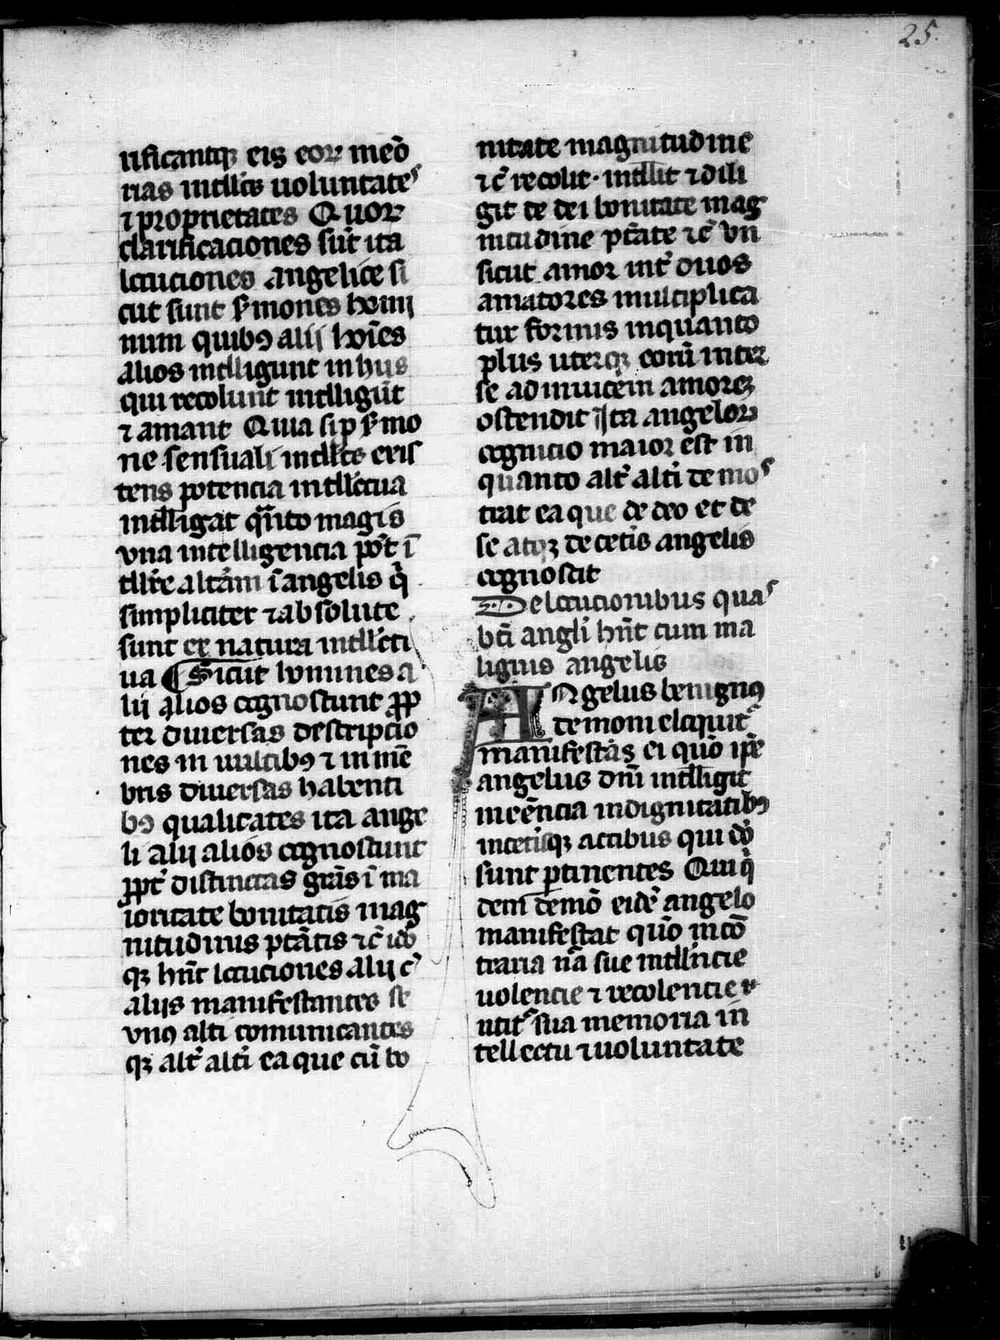 25.
rificantq; eis eoꝝ meō
rias intllcts uoluntates
⁊ proprietates Quoꝝ
clarificaciones sūt ita
locuciones angelice si
cut sunt s̄mones homi
num quibꝯ alij hoīes
alios intlligunt in hus
qui recolunt intlligūt
⁊ amant Quia si ꝑ s̄mo
ne sensuali intllcts exis
tens potencia intllectiua
intlligat q̄nto magis
vna intelligencia pōt ī
tllr̄e altām ī angelis q̄
simpliciter ⁊ absolute
sunt ex natura intllecti
ua ¶ Sicut homines a
lii alios cognoscunt ꝓp
ter diuersas descripcio
nes in uultibꝯ ⁊ in mē
bris diuersas habenti
bꝯ qualitates ita ange
li alij alios cognoscunt
ꝓpt̄ distinctas grās ī ma
ioritate bonitatis mag
nitudinis ptātis ⁊c̄ ido
q; hn̄t locuciones alij c̄
alijs manifestantes se
vnꝯ alti comunicantes
q; alt̄ alti ea que cū bo
nitate magnitudine
⁊c̄ recolit · intllit ⁊ dili
git de dei bonitate mag
nitudine ptāte ⁊c̄ vn
sicut amor int̄ duos
amatores multiplica
tur formis inquanto
plus uterq; eorū inter
se adinuicem amorez
ostendit Ita angeloꝝ
cognicio maior est in
quanto alt̄ alti de mos
trat ea que de deo et de
se atq; de cetīs angelis
cognoscit
De locucionibus quas
bōi angli hn̄t cum ma
lignis angelis
Angelus benignꝯ
demoni eloquit̄
manifestās ei quō ip̄e
angelus dn̄i intlligit
incēncia in dignitatibꝯ
incetisq; actibus qui dō
sunt ꝑtinentes Qui q̄
dem demō eidē angelo
manifestat quō in cō
traria nā sue intllincie
uolencie ⁊ recolencie v
utit̄ sua memoria in
tellectu ⁊ uoluntate